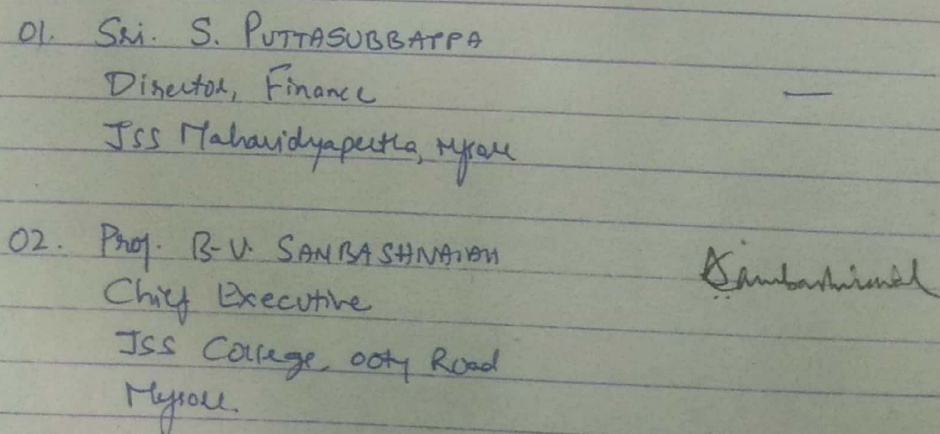 01. Sri. S. PUTTASUBBAPPA
Director, Finance —
JSS Mahavidyapeetha, Mysore
02. Prof. B.V. SAMBASHIVAIAH
Chief Executive
JSS College, Ooty Road
Mysore.